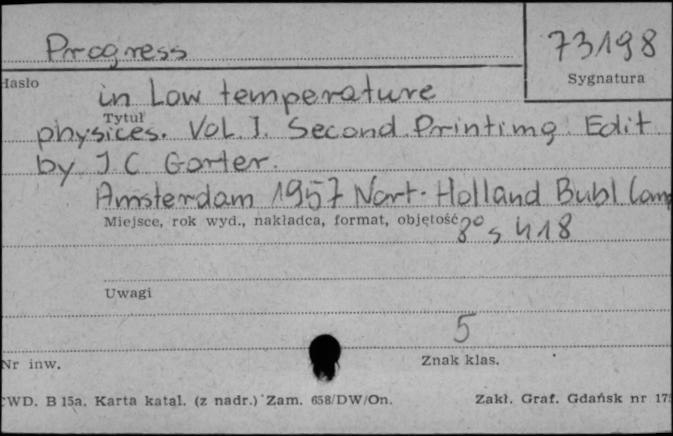 Progress
73198
Hasło
Sygnatura
in Low temperature
Tytuł
physices. Vol. I. Second. Printimg. Edit
by J C Gorter.
Amsterdam 1957 Nort-Holland Bubl Comp
Miejsce, rok wyd., nakładca, format, objętość
8° s 418
Uwagi
5
Nr inw.
Znak klas.
CWD. B 15a. Karta katal. (z nadr.) Zam. 658/DW/On.
Zakł. Graf. Gdańsk nr 175